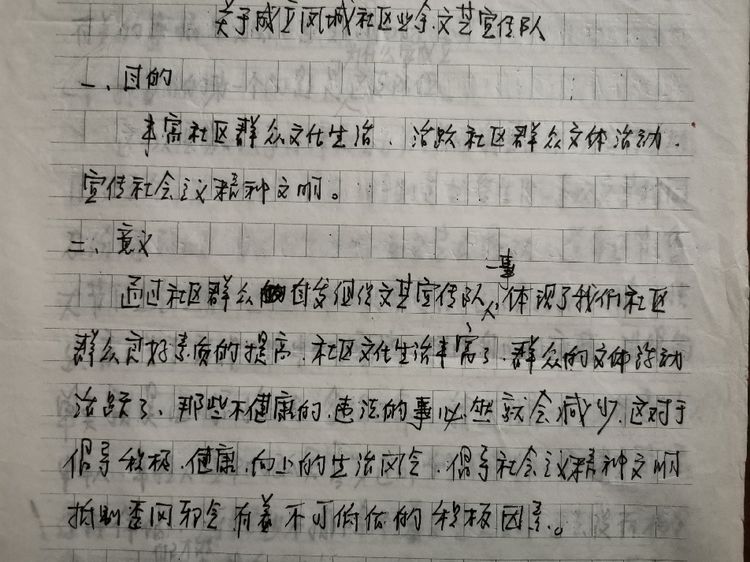 关于成立凤城社区业余文艺宣传队
一、目的
丰富社区群众文化生活、活跃社区群众文体活动、
宣传社会主义精神文明。
二、意义
通过社区群众自发组织文艺宣传队一事，体现了我们社区
群众良好素质的提高、社区文化生活丰富了、群众的文体活动
活跃了、那些不健康的、违法的事必然就会减少，这对于
倡导积极、健康、向上的生活风会、倡导社会主义精神文明
抵制歪风邪会有着不可低估的积极因素。